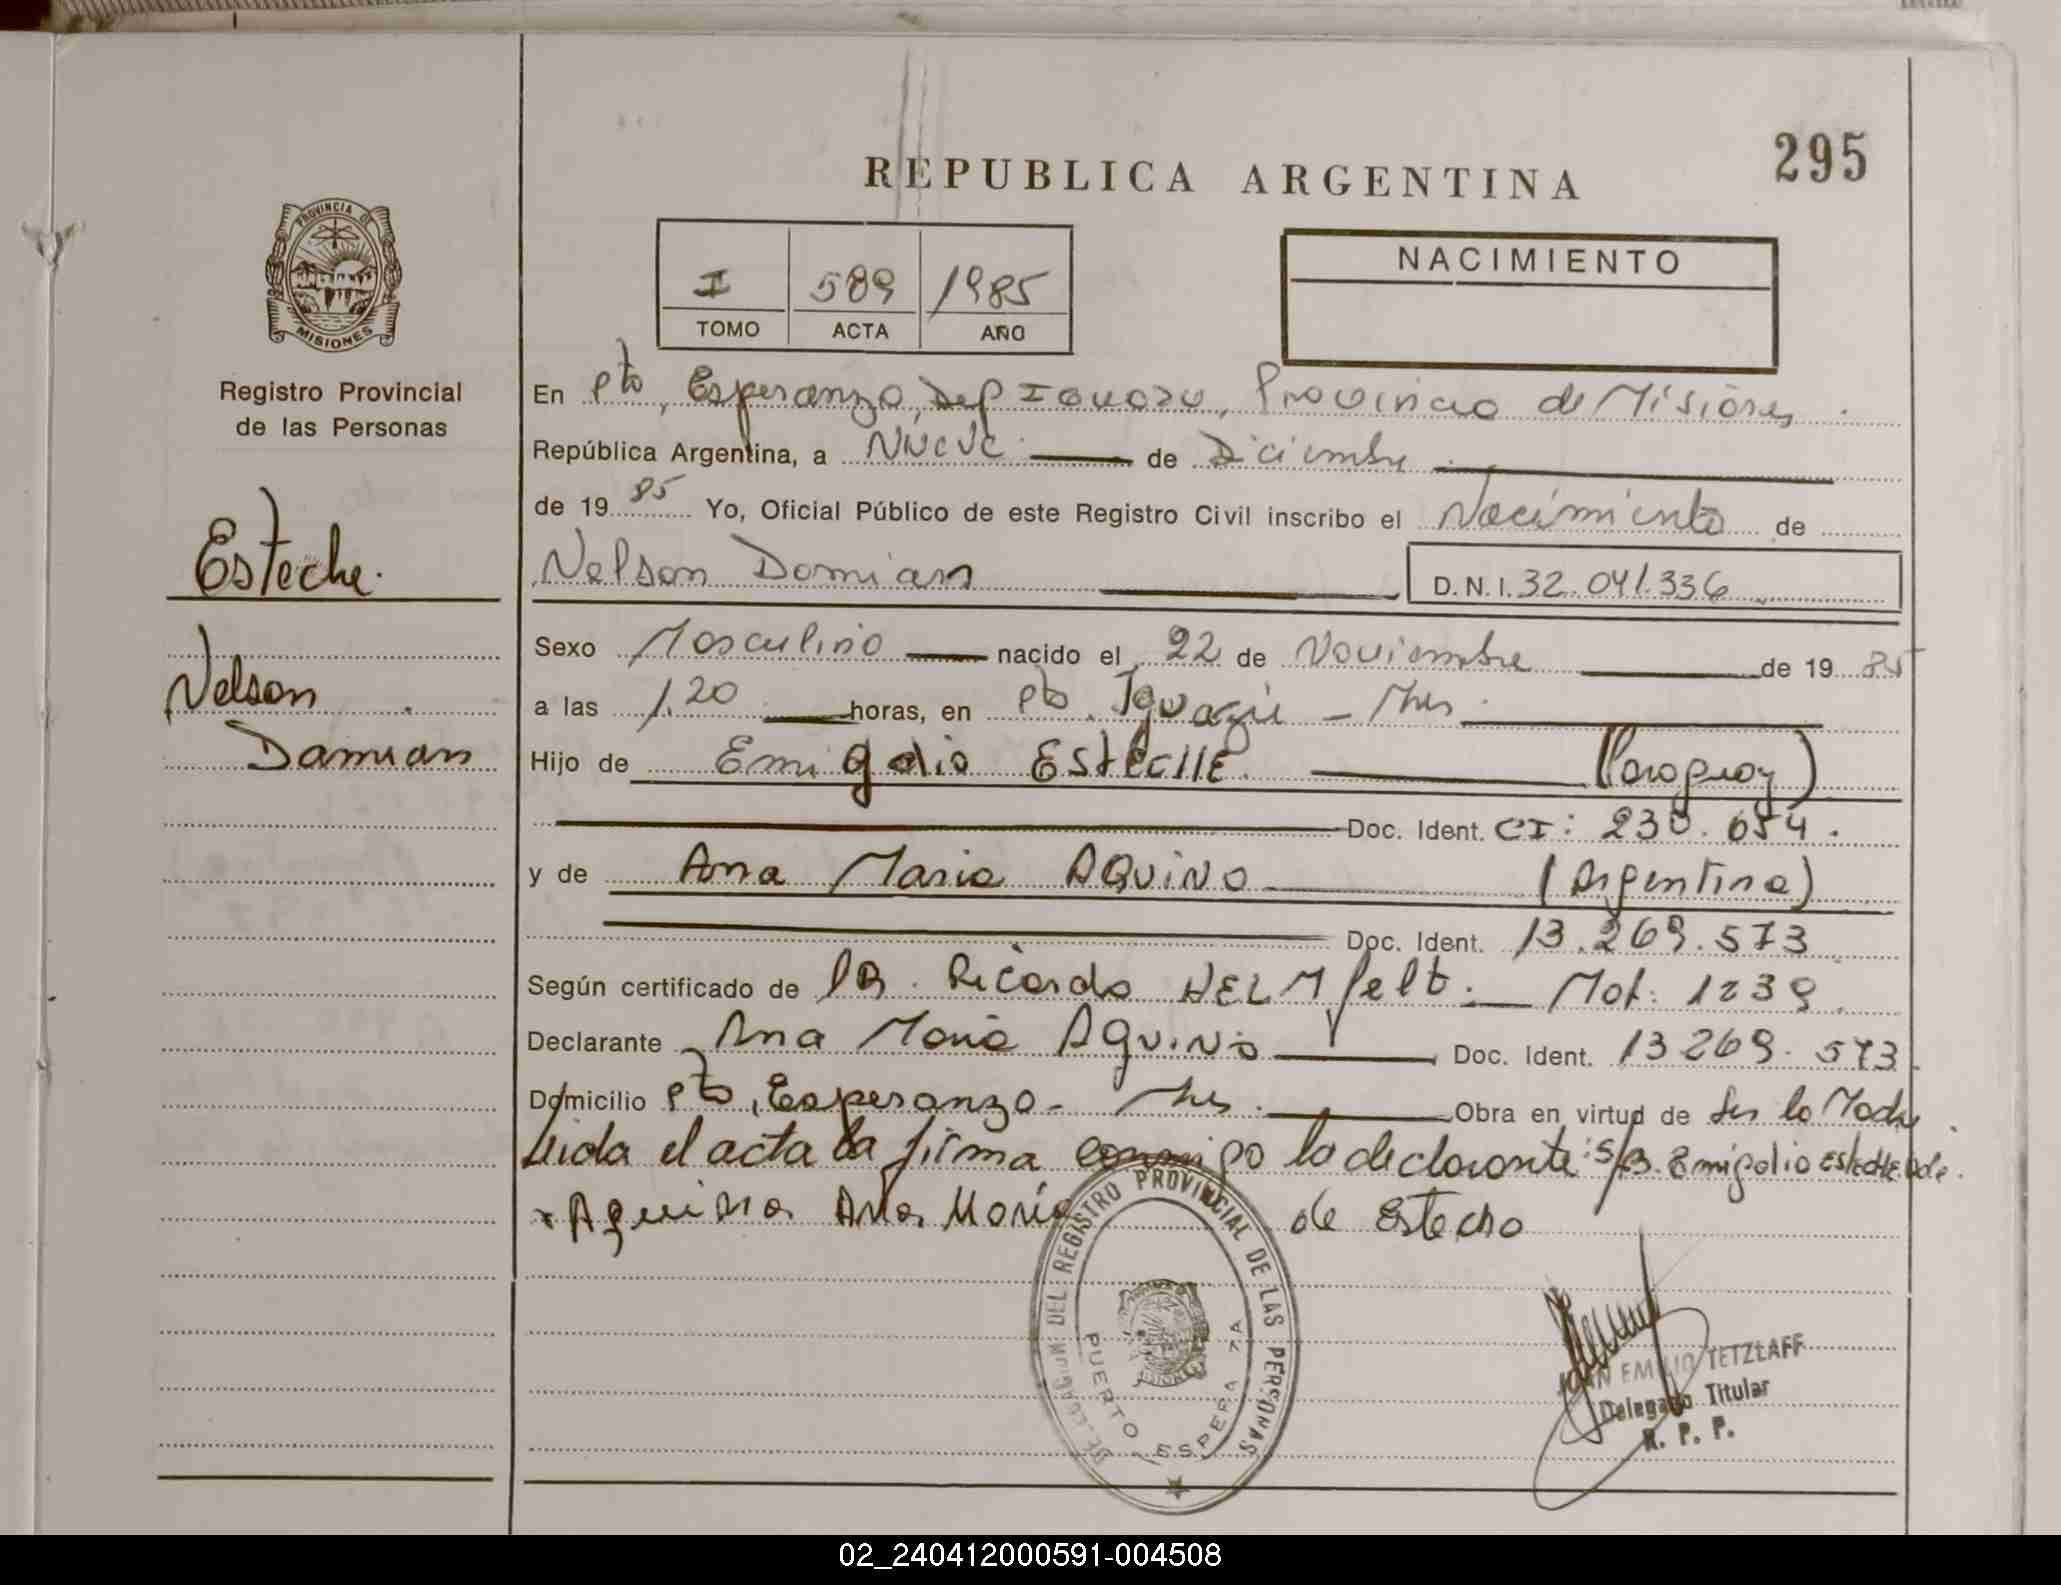 295
REPUBLICA ARGENTINA
PROVINCIA DE
MISIONES
Registro Provincial
de las Personas
I 589 1985
TOMO ACTA AÑO
NACIMIENTO
En Pto, Esperanza, Dep Iguazu, Provincia de Misiones
República Argentina, a Nueve de Diciembre
de 19 85 Yo, Oficial Público de este Registro Civil inscribo el Nacimiento de
Esteche.
Nelson Damian D.N.I. 32.041.336
Sexo Masculino nacido el 22 de Noviembre de 19 85
Nelson
Damian
a las 1.20 horas, en Pto. Iguazú - Mnes
Hijo de Emigdio ESTECHE. (Paraguay)
Doc. Ident. CI: 230.654.
y de Ana Maria AQUINO (Argentina)
Doc. Ident. 13.269.573
Según certificado de Ricardo Mat: 1239
Declarante Ana Maria AQUINO Doc. Ident. 13 269.573
Domicilio Pto, Esperanza - Mnes. Obra en virtud de Ser la Madre
Leida el acta la firma conmigo la declarante: S/B. Emigdio Esteche vale.
x Aquino Ana María de Esteche
DELEGACION DEL REGISTRO PROVINCIAL DE LAS PERSONAS
PUERTO ESPERANZA
JUAN EMILIO TETZLAFF
Delegado Titular
R. P. P.
02_240412000591-004508